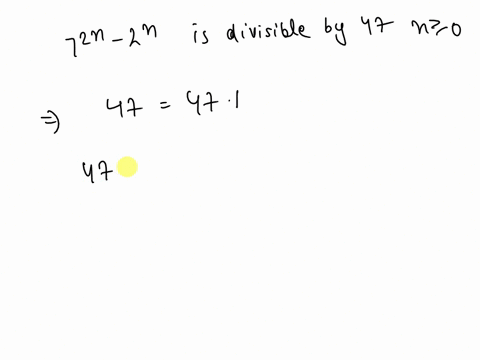 7^{2n} - 2^n is divisible by 47 n ≥ 0
⇒ 47 = 47 · 1
47